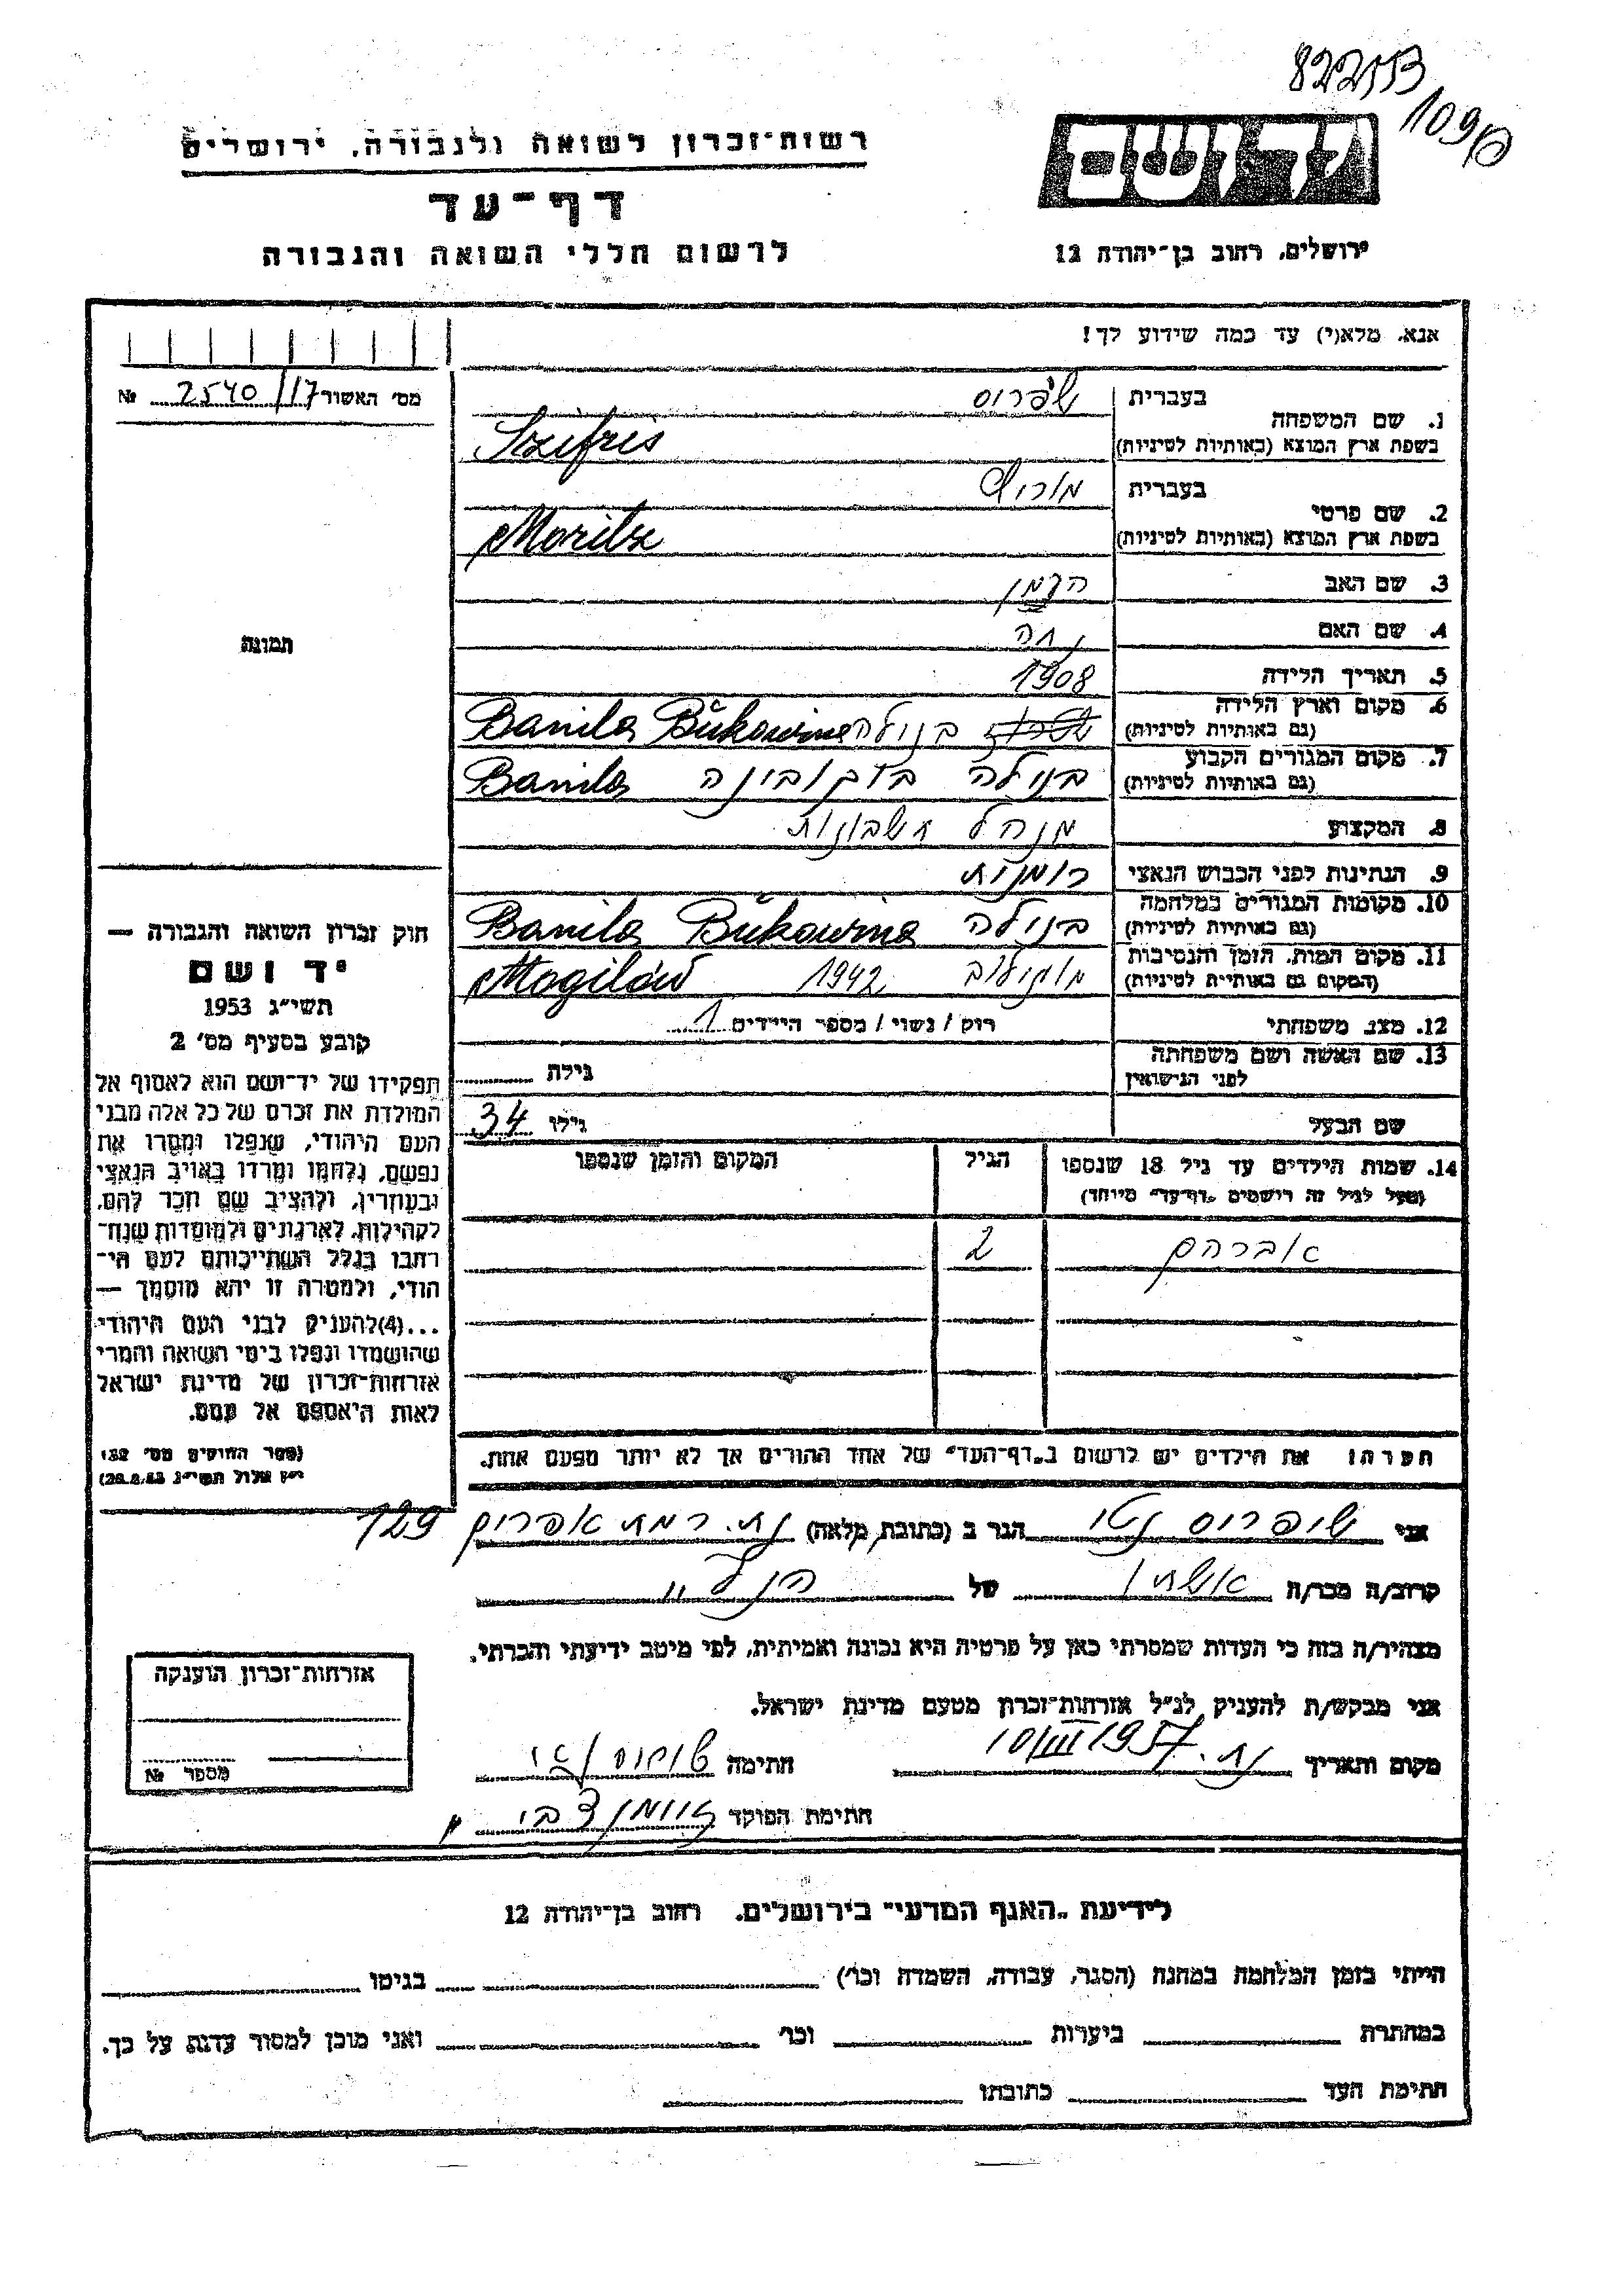 822553
109
רשות־זכרון לשואה ולגבורה, ירושלים
יד ושם
דף־עד
לרשום חללי השואה והגבורה
ירושלים, רחוב בן־יהודה 12
אנא, מלא(י) עד כמה שידוע לך!
מס׳ האשור 2540/17 №
בעברית שיפריס
1. שם המשפחה
בשפת ארץ המוצא (באותיות לטיניות) Szifris
בעברית מוריץ
2. שם פרטי
בשפת ארץ המוצא (באותיות לטיניות) Moritz
3. שם האב הרמן
4. שם האם חנה
5. תאריך הלידה 1908
6. מקום וארץ הלידה
(גם באותיות לטיניות) בנילה Banila Bŭkowina
7. מקום המגורים הקבוע
(גם באותיות לטיניות) בנילה בוקובינה Banila
8. המקצוע מנהל חשבונות
9. הנתינות לפני הכבוש הנאצי רומנית
10. מקומות המגורים במלחמה
(גם באותיות לטיניות) בנילה Banila Bŭkowina
11. מקום המות, הזמן והנסיבות
(המקום גם באותיות לטיניות) מוגילוב 1942 Mogilów
12. מצב משפחתי רוק / נשוי / מספר הילדים 1
13. שם האשה ושם משפחתה
לפני הנישואין גילה
שם הבעל גילו 34
14. שמות הילדים עד גיל 18 שנספו הגיל המקום והזמן שנספו
(מעל לגיל זה רושמים „דף־עד״ מיוחד)
אברהם 2
הערה: את הילדים יש לרשום ב„דף־העד״ של אחד ההורים אך לא יותר מפעם אחת.
תמונה
חוק זכרון השואה והגבורה —
יד ושם
תשי״ג 1953
קובע בסעיף מס׳ 2
תפקידו של יד־ושם הוא לאסוף אל
המולדת את זכרם של כל אלה מבני
העם היהודי, שנפלו ומסרו את
נפשם, נלחמו ומרדו באויב הנאצי
ובעוזריו, ולהציב שם וזכר להם,
לקהילות, לארגונים ולמוסדות שנח־
רבו בגלל השתייכותם לעם הי־
הודי, ולמטרה זו יהא מוסמך —
...(4)להעניק לבני העם היהודי
שהושמדו ונפלו בימי השואה והמרי
אזרחות־זכרון של מדינת ישראל
לאות היאספם אל עמם.
(ספר החוקים מס׳ 132
י״ז אלול תשי״ג 28.8.53)
אני שיפריס הגר ב (כתובת מלאה) נת. רמת אפרים 129
קרוב/ה מכר/ה אשתו של הנ״ל
מצהיר/ה בזה כי העדות שמסרתי כאן על פרטיה היא נכונה ואמיתית, לפי מיטב ידיעתי והכרתי.
אני מבקש/ת להעניק לנ״ל אזרחות־זכרון מטעם מדינת ישראל.
מקום ותאריך נת. 10/III 1957 חתימה
חתימת הפוקד צבי
אזרחות־זכרון הוענקה
מספר №
לידיעת „האגף המדעי״ בירושלים, רחוב בן־יהודה 12
הייתי בזמן המלחמה במחנה (הסגר, עבודה, השמדה וכו׳) בגיטו
במחתרת ביערות וכו׳ ואני מוכן למסור עדות על כך.
חתימת העד כתובתו